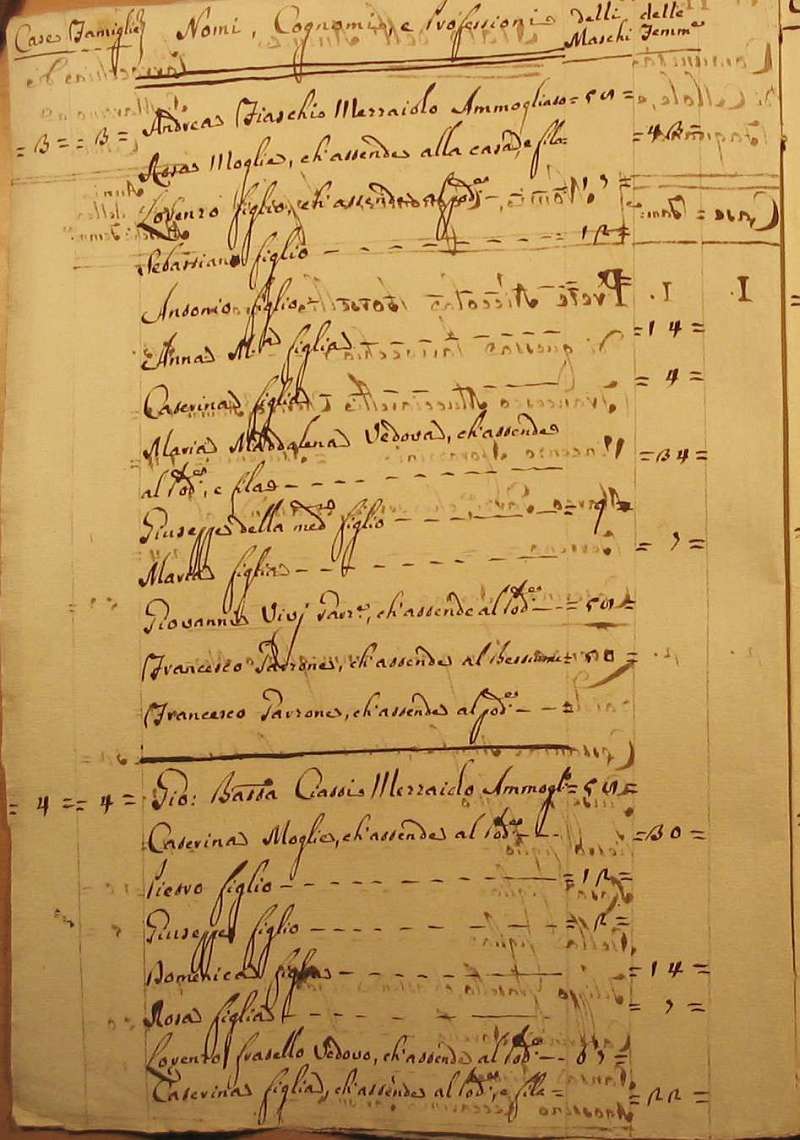 Case Famiglie Nomi, Cognomi, e Professioni delli Maschi delle Femme
= 3 = = 3 = Andrea Fiaschi Mezzaiolo Ammogliato =
Rosa Moglie, ch'assende alla casa, e fila =
Lorenzo figlio, ch'assende al pod.es
Sebastiano figlio - - - - - = 12 =
Antonio figlio
Anna M.a figlia - - - - - = 14 =
Caterina figlia - - - - - = 4 =
Maria Maddalena Vedova, ch'assende
al pod.es, e fila - - - - - = 34 =
Giuseppe della med.a figlio - - - -
Maria figlia - - - - -
Giovanni ch'assende al pod.es - -
Francesco Garzone, ch'assende al
Francesco Garzone, ch'assende al pod.es - - =
= 4 = = 4 = Gio: Batta Mezzaiolo Ammogl.o
Caterina Moglie, ch'assende al pod.es - - = 30 =
Pietro figlio - - - - - = 12 =
Giuseppe figlio - - - - -
Domenica figlia - - - - - = 14 =
Rosa figlia - - - - -
Lorenzo fratello Vedovo, ch'assende al pod.es - -
Caterina figlia, ch'assende al pod.es, e fila = = 22 =